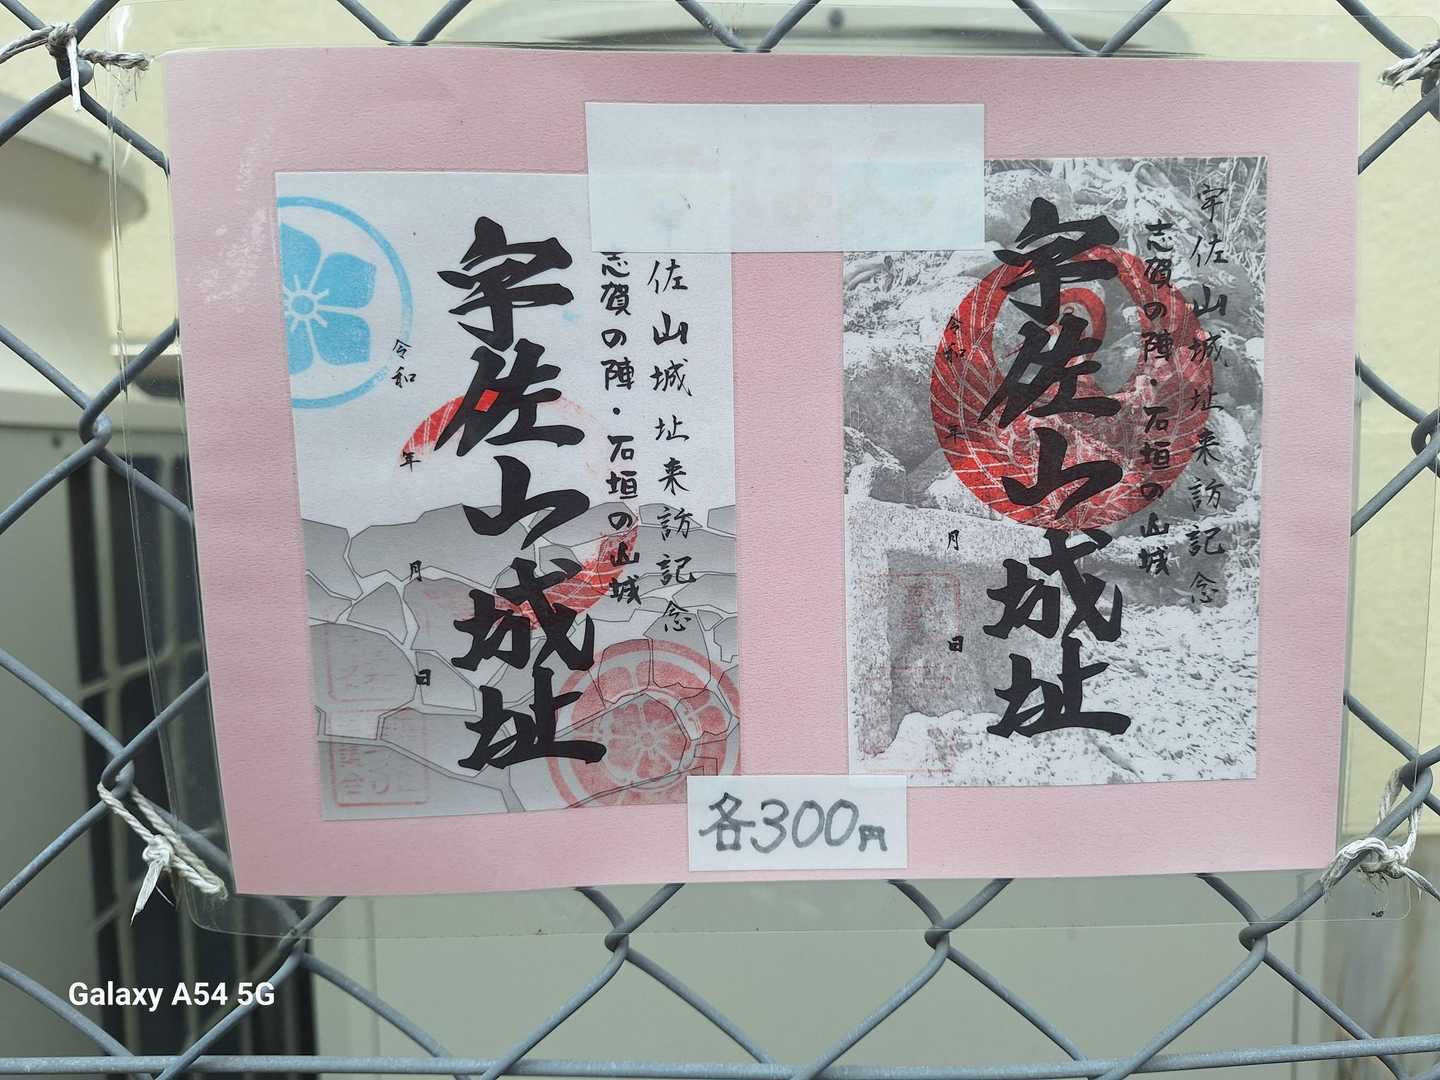 宇佐山城址
佐山城址来訪記念
志賀の陣・石垣の山城
令和
年
月
日
宇佐山城址来訪記念
志賀の陣・石垣の山城
宇佐山城址
令和
年
月
日
各300円
Galaxy A54 5G